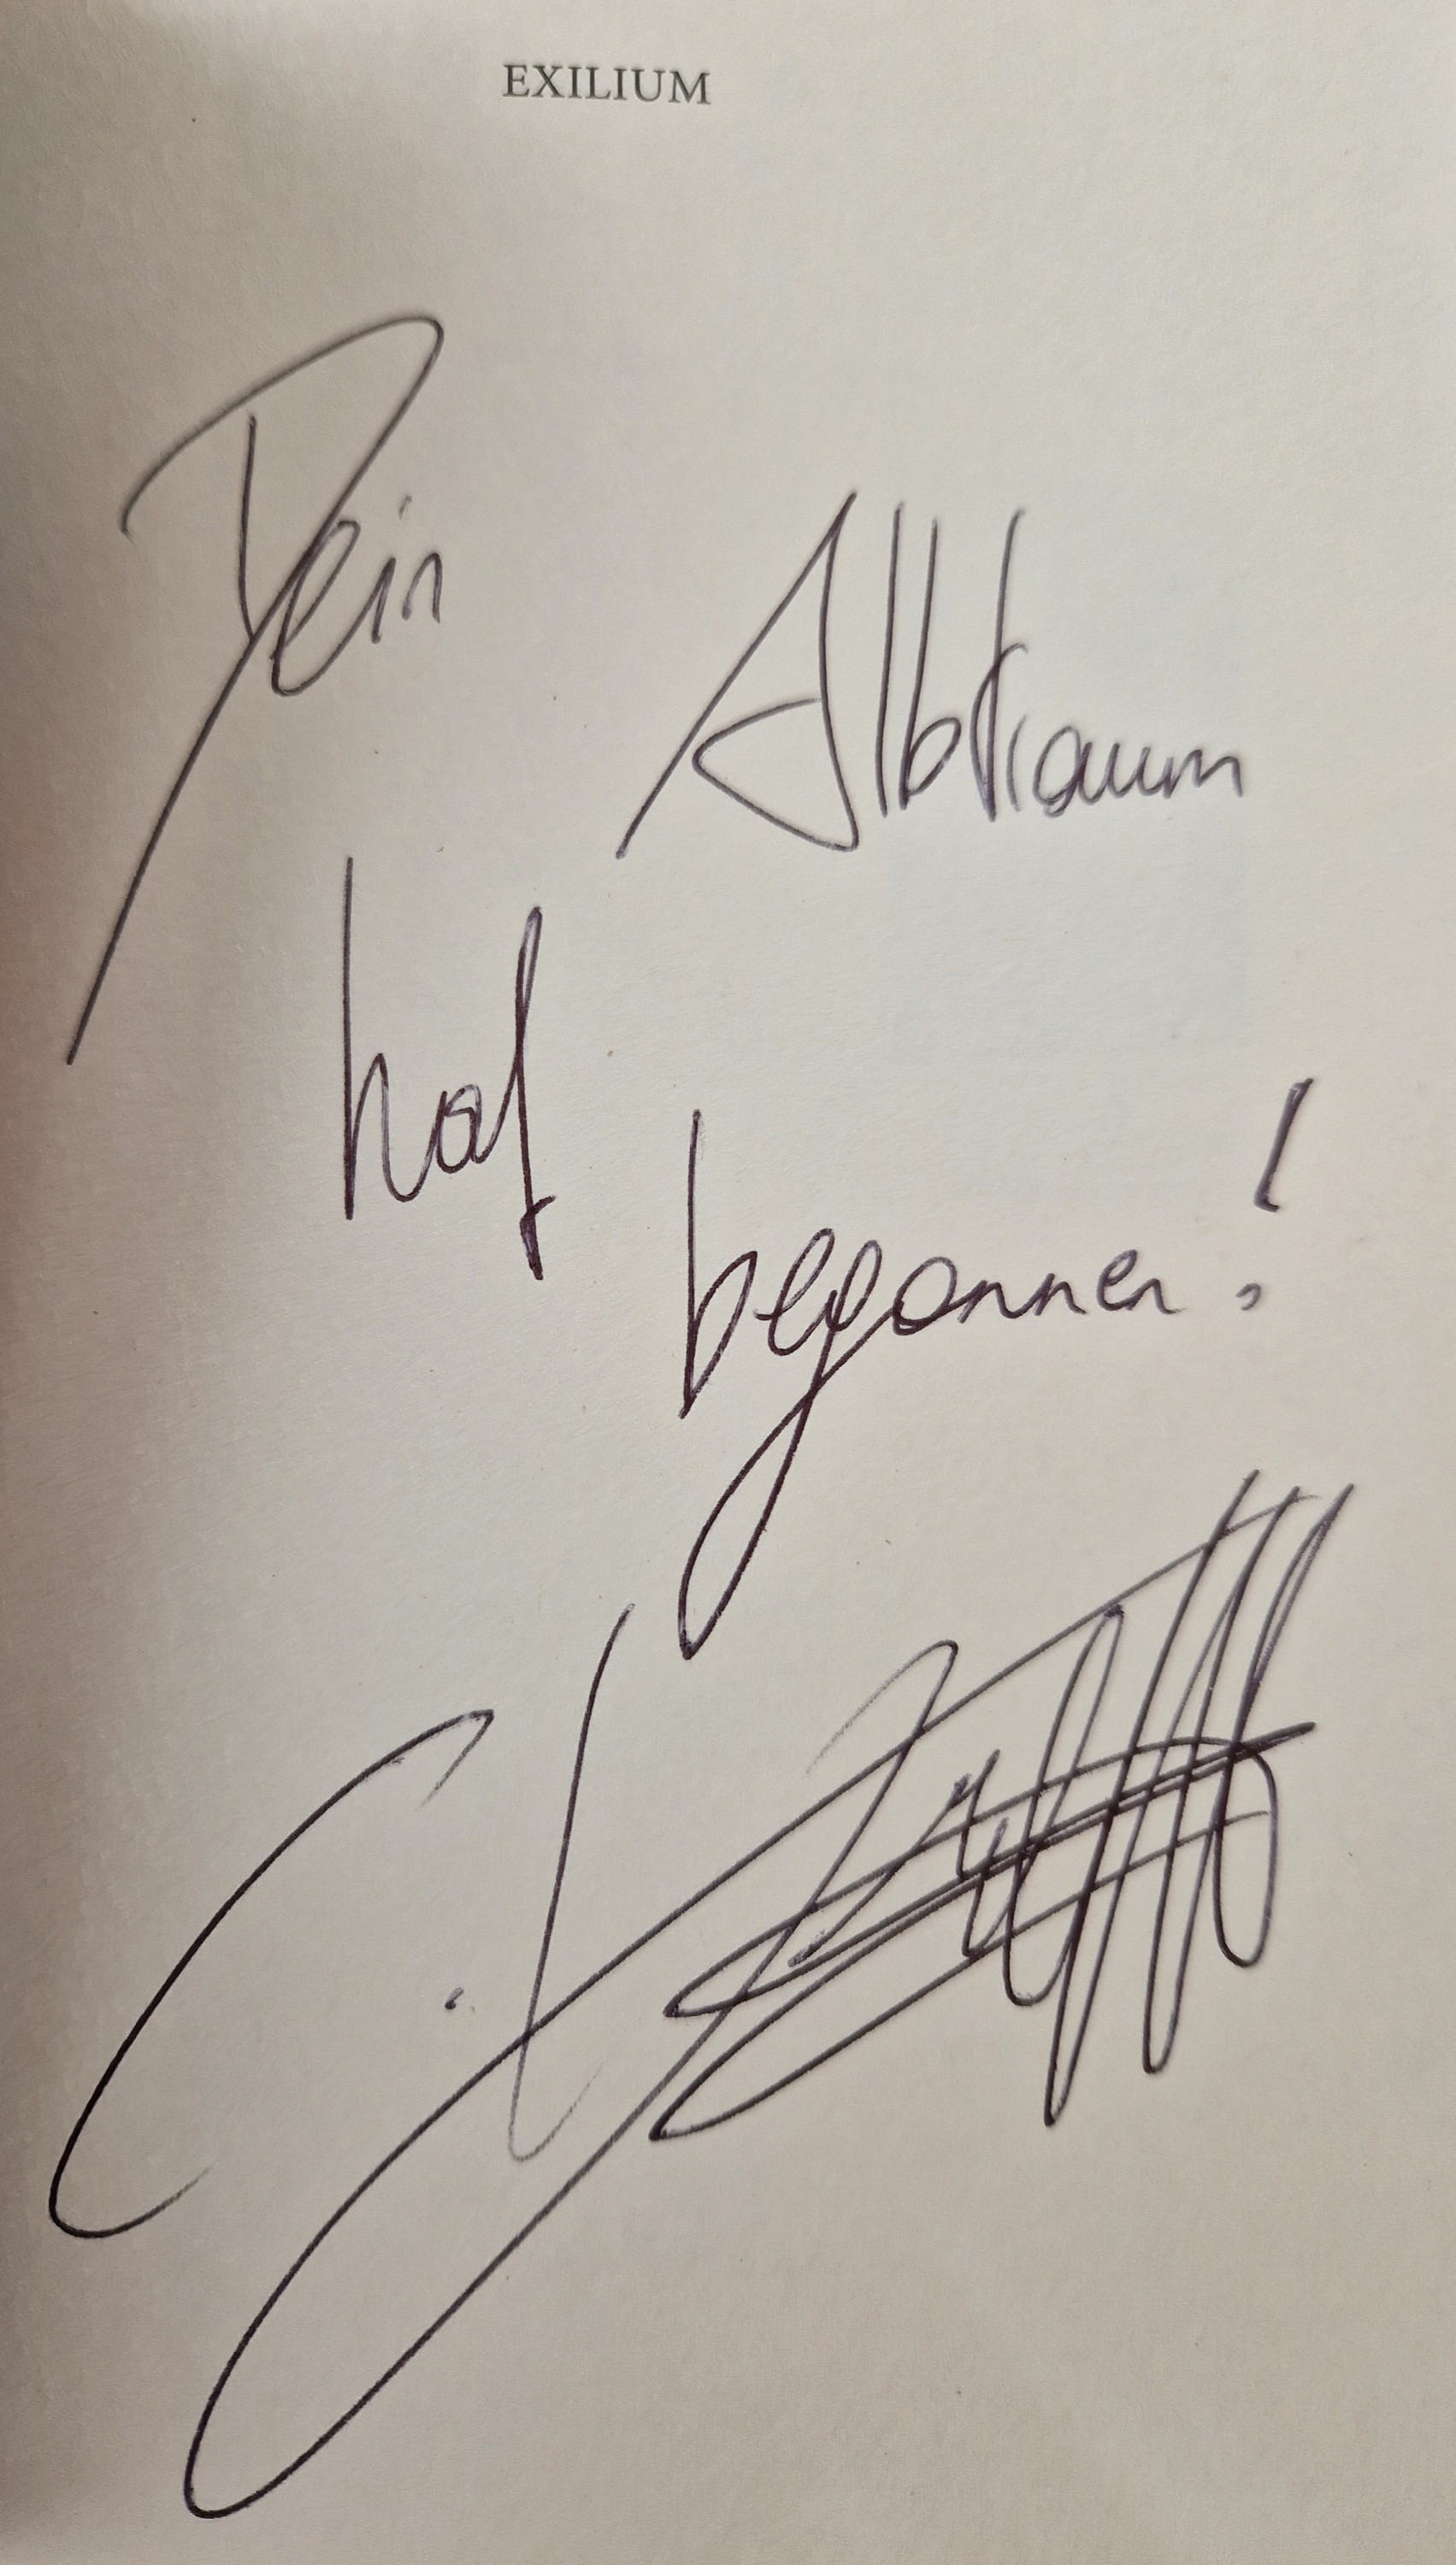 EXILIUM
Dein
Albtraum
hat
begonnen!